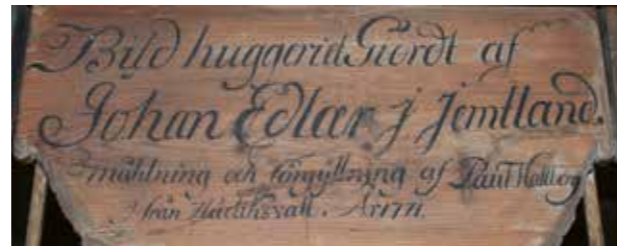 Bild huggerit Giordt af
Johan Edlær j Jemtland.
måhlning och förgyllning af Paul Hallberg
från Hudikswall. År 1771.